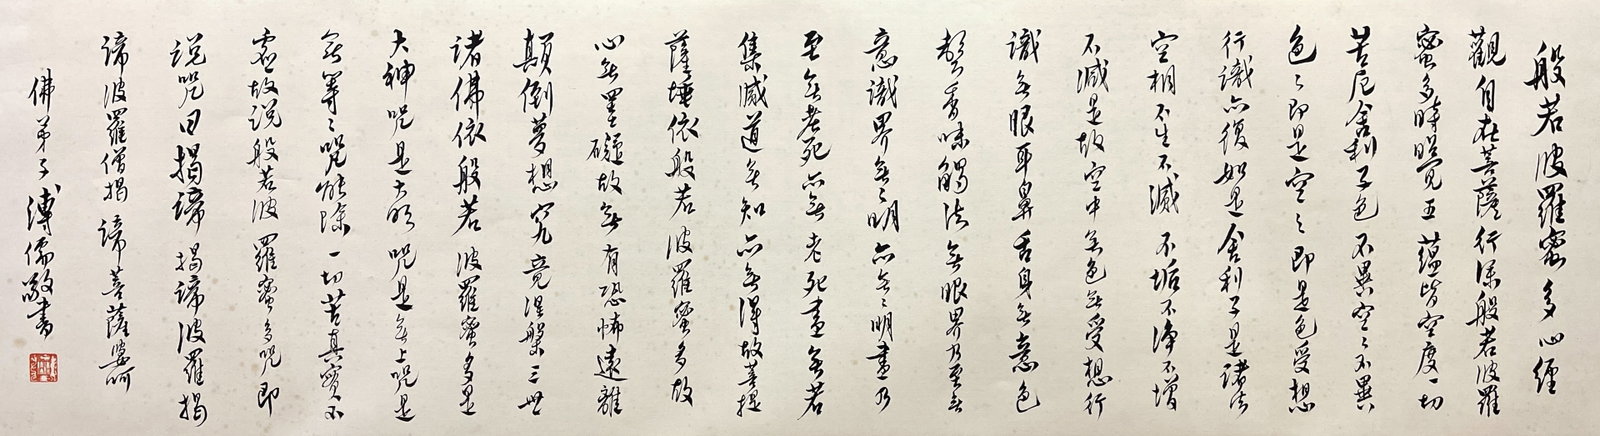 般若波羅蜜多心經
觀自在菩薩行深般若波羅
蜜多時照見五蘊皆空度一切
苦厄舍利子色不異空〻不異
色〻即是空〻即是色受想
行識亦復如是舍利子是諸法
空相不生不滅不垢不淨不增
不減是故空中無色無受想行
識無眼耳鼻舌身無意色
聲香味觸法無眼界乃至無
意識界無〻明亦無〻明盡乃
至無老死亦無老死盡無苦
集滅道無知亦無得故菩提
薩埵依般若波羅蜜多故
心無罣礙故無有恐怖遠離
顛倒夢想究竟涅槃三世
諸佛依般若波羅蜜多是
大神咒是大明咒是無上咒是
無等〻咒能除一切苦真實不
虛故說般若波羅蜜多咒即
說咒曰揭諦揭諦波羅揭
諦波羅僧揭諦菩薩婆訶
佛弟子溥儒敬書